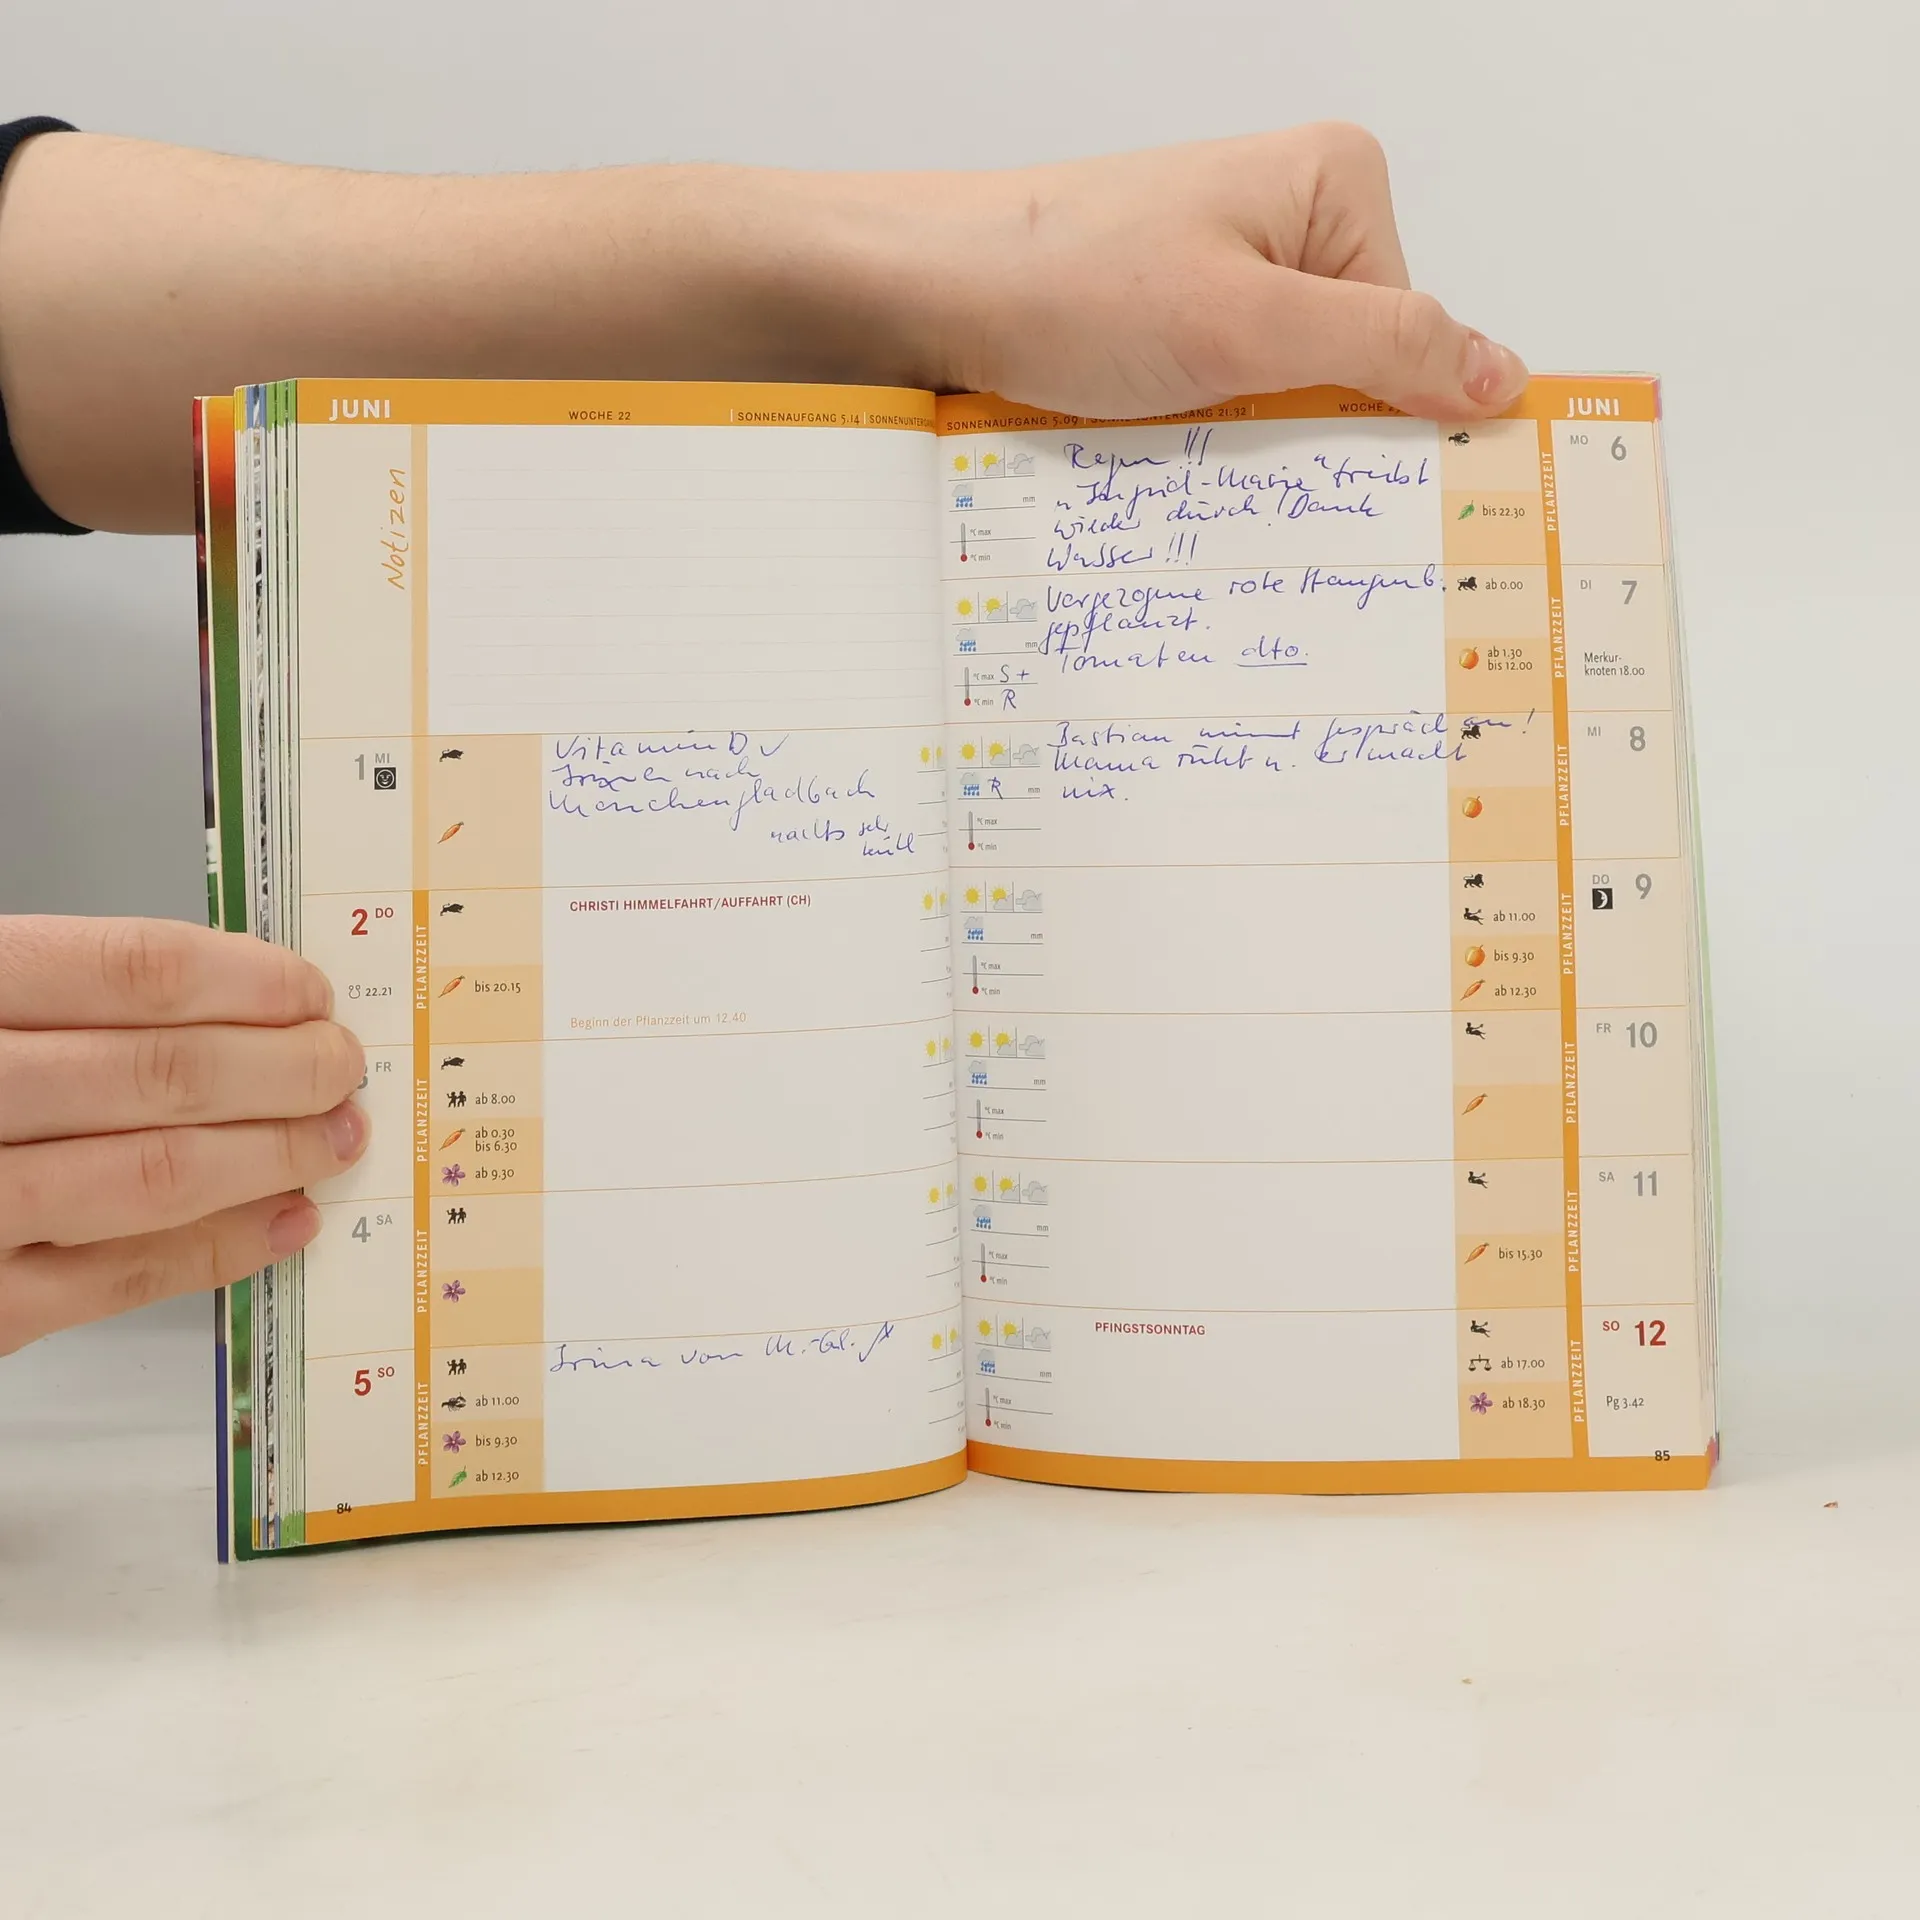 JUNI
WOCHE 22
SONNENAUFGANG 5.14 | SONNENUNTERGANG
Notizen
1 MI
Vitamin D ✓
nach
Mönchengladbach
nachts sehr
kühl
2 DO
CHRISTI HIMMELFAHRT/AUFFAHRT (CH)
22.21
PFLANZZEIT
bis 20.15
Beginn der Pflanzzeit um 12.40
FR
PFLANZZEIT
ab 8.00
ab 0.30
bis 6.30
ab 9.30
4 SA
PFLANZZEIT
5 SO
PFLANZZEIT
Irina von M.-Gl.
ab 11.00
bis 9.30
ab 12.30
84
SONNENAUFGANG 5.09 | SONNENUNTERGANG 21.32 |
WOCHE
JUNI
MO 6
Regen !!!
"Ingrid-Marie" treibt
wieder durch! Dank
Wasser!!!
mm
°C max
°C min
PFLANZZEIT
bis 22.30
DI 7
Vorgezogene rote Stangenb.
gepflanzt.
Tomaten dto.
mm
°C max S +
°C min R
ab 0.00
PFLANZZEIT
ab 1.30
bis 12.00
Merkur-
knoten 18.00
MI 8
Bastian nimmt Gespräch an!
Mama ruht u. er macht
nix.
R mm
°C max
°C min
PFLANZZEIT
DO 9
mm
°C max
°C min
PFLANZZEIT
ab 11.00
bis 9.30
ab 12.30
FR 10
mm
°C max
°C min
PFLANZZEIT
SA 11
mm
°C max
°C min
PFLANZZEIT
bis 15.30
SO 12
PFINGSTSONNTAG
mm
°C max
°C min
PFLANZZEIT
ab 17.00
ab 18.30
Pg 3.42
85